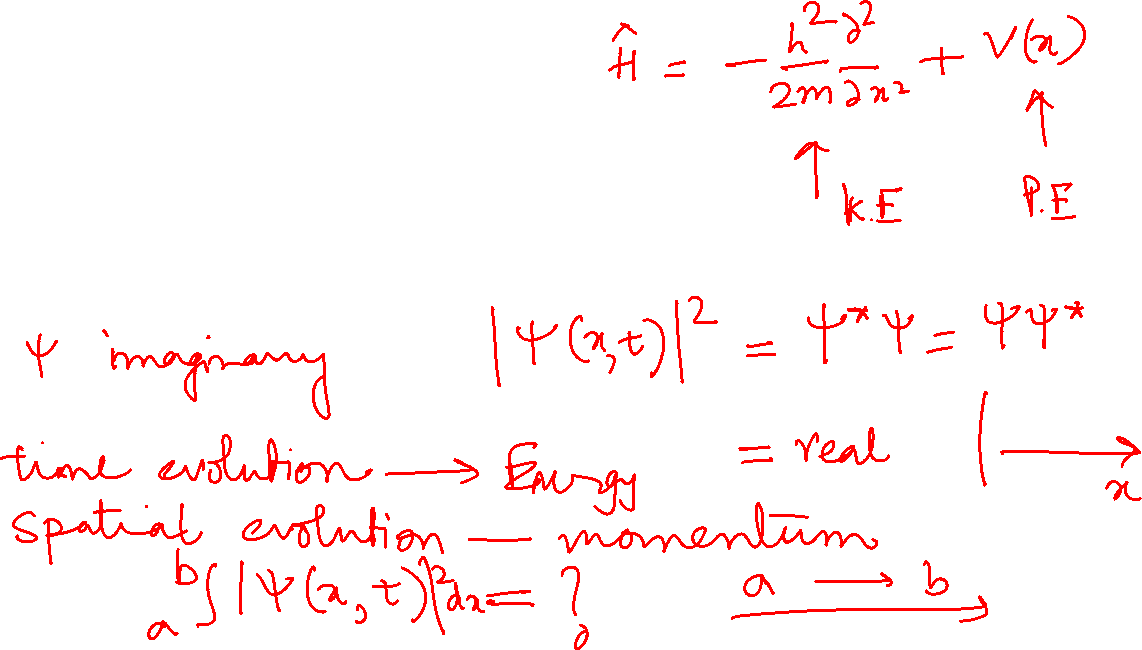 Ĥ = - h²/2m ∂²/∂x² + V(x)
↑ K.E ↑ P.E
ψ imaginary |ψ(x,t)|² = ψ*ψ = ψψ*
time evolution → Energy = real | → x
spatial evolution — momentum
a∫b |ψ(x,t)|²dx = ? a → b